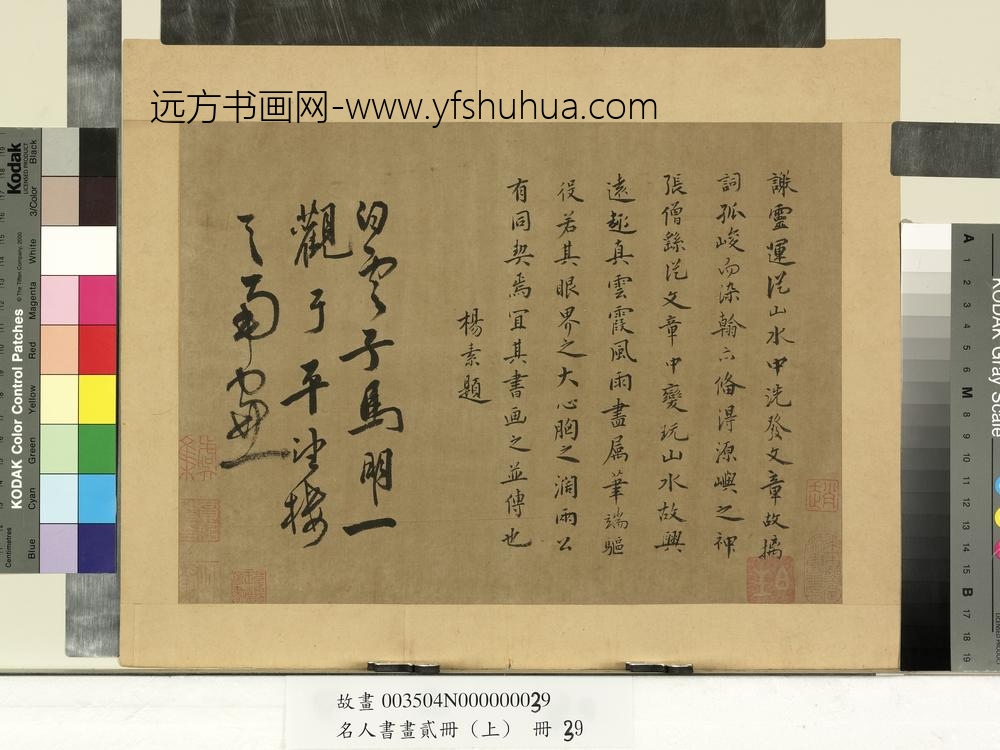 远方书画网-www.yfshuhua.com
謝靈運從山水中洗發文章故摛
詞孤峻而染翰亦備得源嶼之神
張僧繇從文章中變玩山水故興
遠趣真雲霞風雨盡屬筆端驅
役若其眼界之大心胸之濶兩公
有同契焉宜其書画之並傳也
楊素題
白雲子馬明一
觀于平望樓
之南窗
故畫 003504N000000039
名人書畫貳冊（上） 冊 39
Kodak
LICENSED PRODUCT
KODAK Color Control Patches
© The Tiffen Company, 2000
Blue
Cyan
Green
Yellow
Red
Magenta
White
3/Color
Black
Centimetres
KODAK Gray Scale
A 1 2 3 4 5 6 M 8 9 10 11 12 13 14 15 B 17 18 19